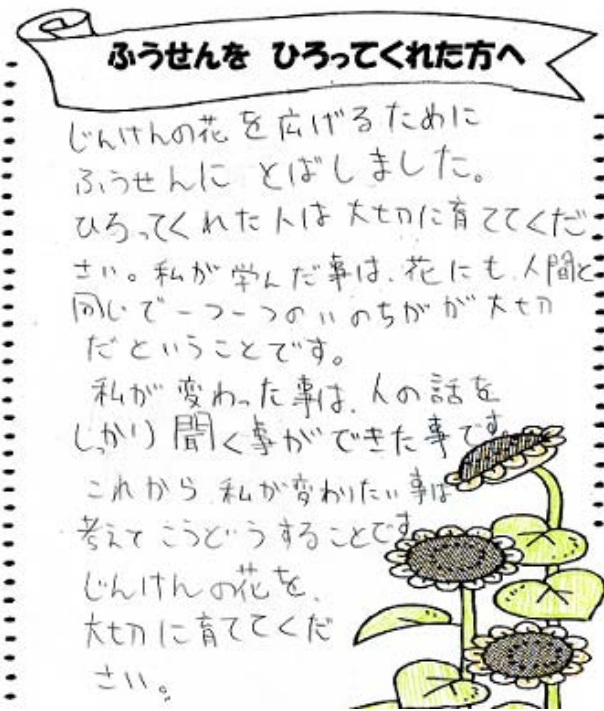 ふうせんを ひろってくれた方へ
じんけんの花を広げるために
ふうせんに とばしました。
ひろってくれた人は大切に育ててくだ
さい。私が学んだ事は、花にも、人間と
同じで一つ一つのいのちがが大切
だということです。
私が変わった事は、人の話を
しっかり聞く事ができた事です。
これから、私が変わりたい事は
考えてこうどうすることです
じんけんの花を、
大切に育ててくだ
さい。